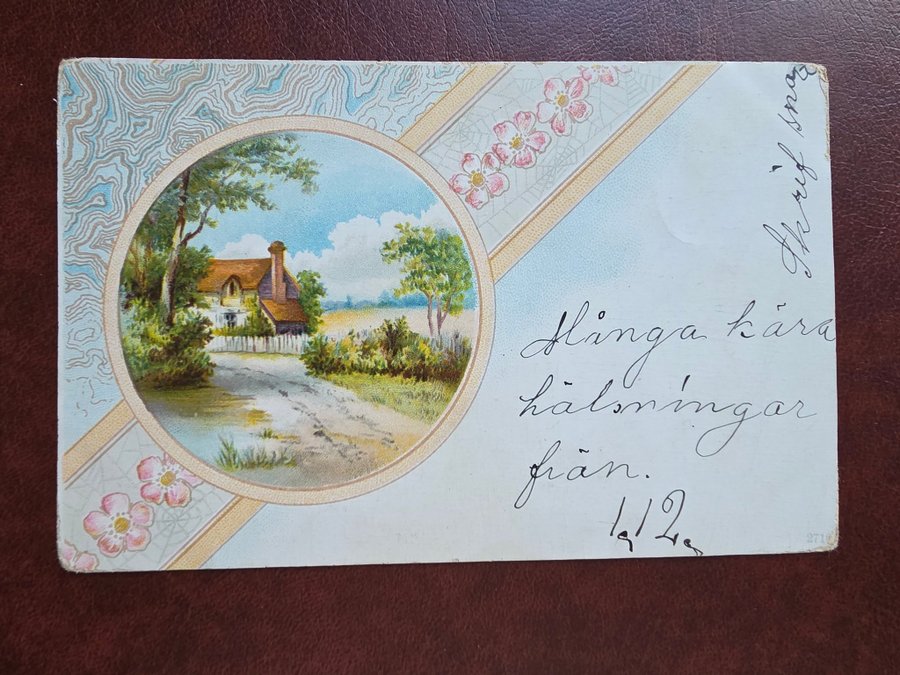 Skrif sna
Många kära
hälsningar
från.
1912
271